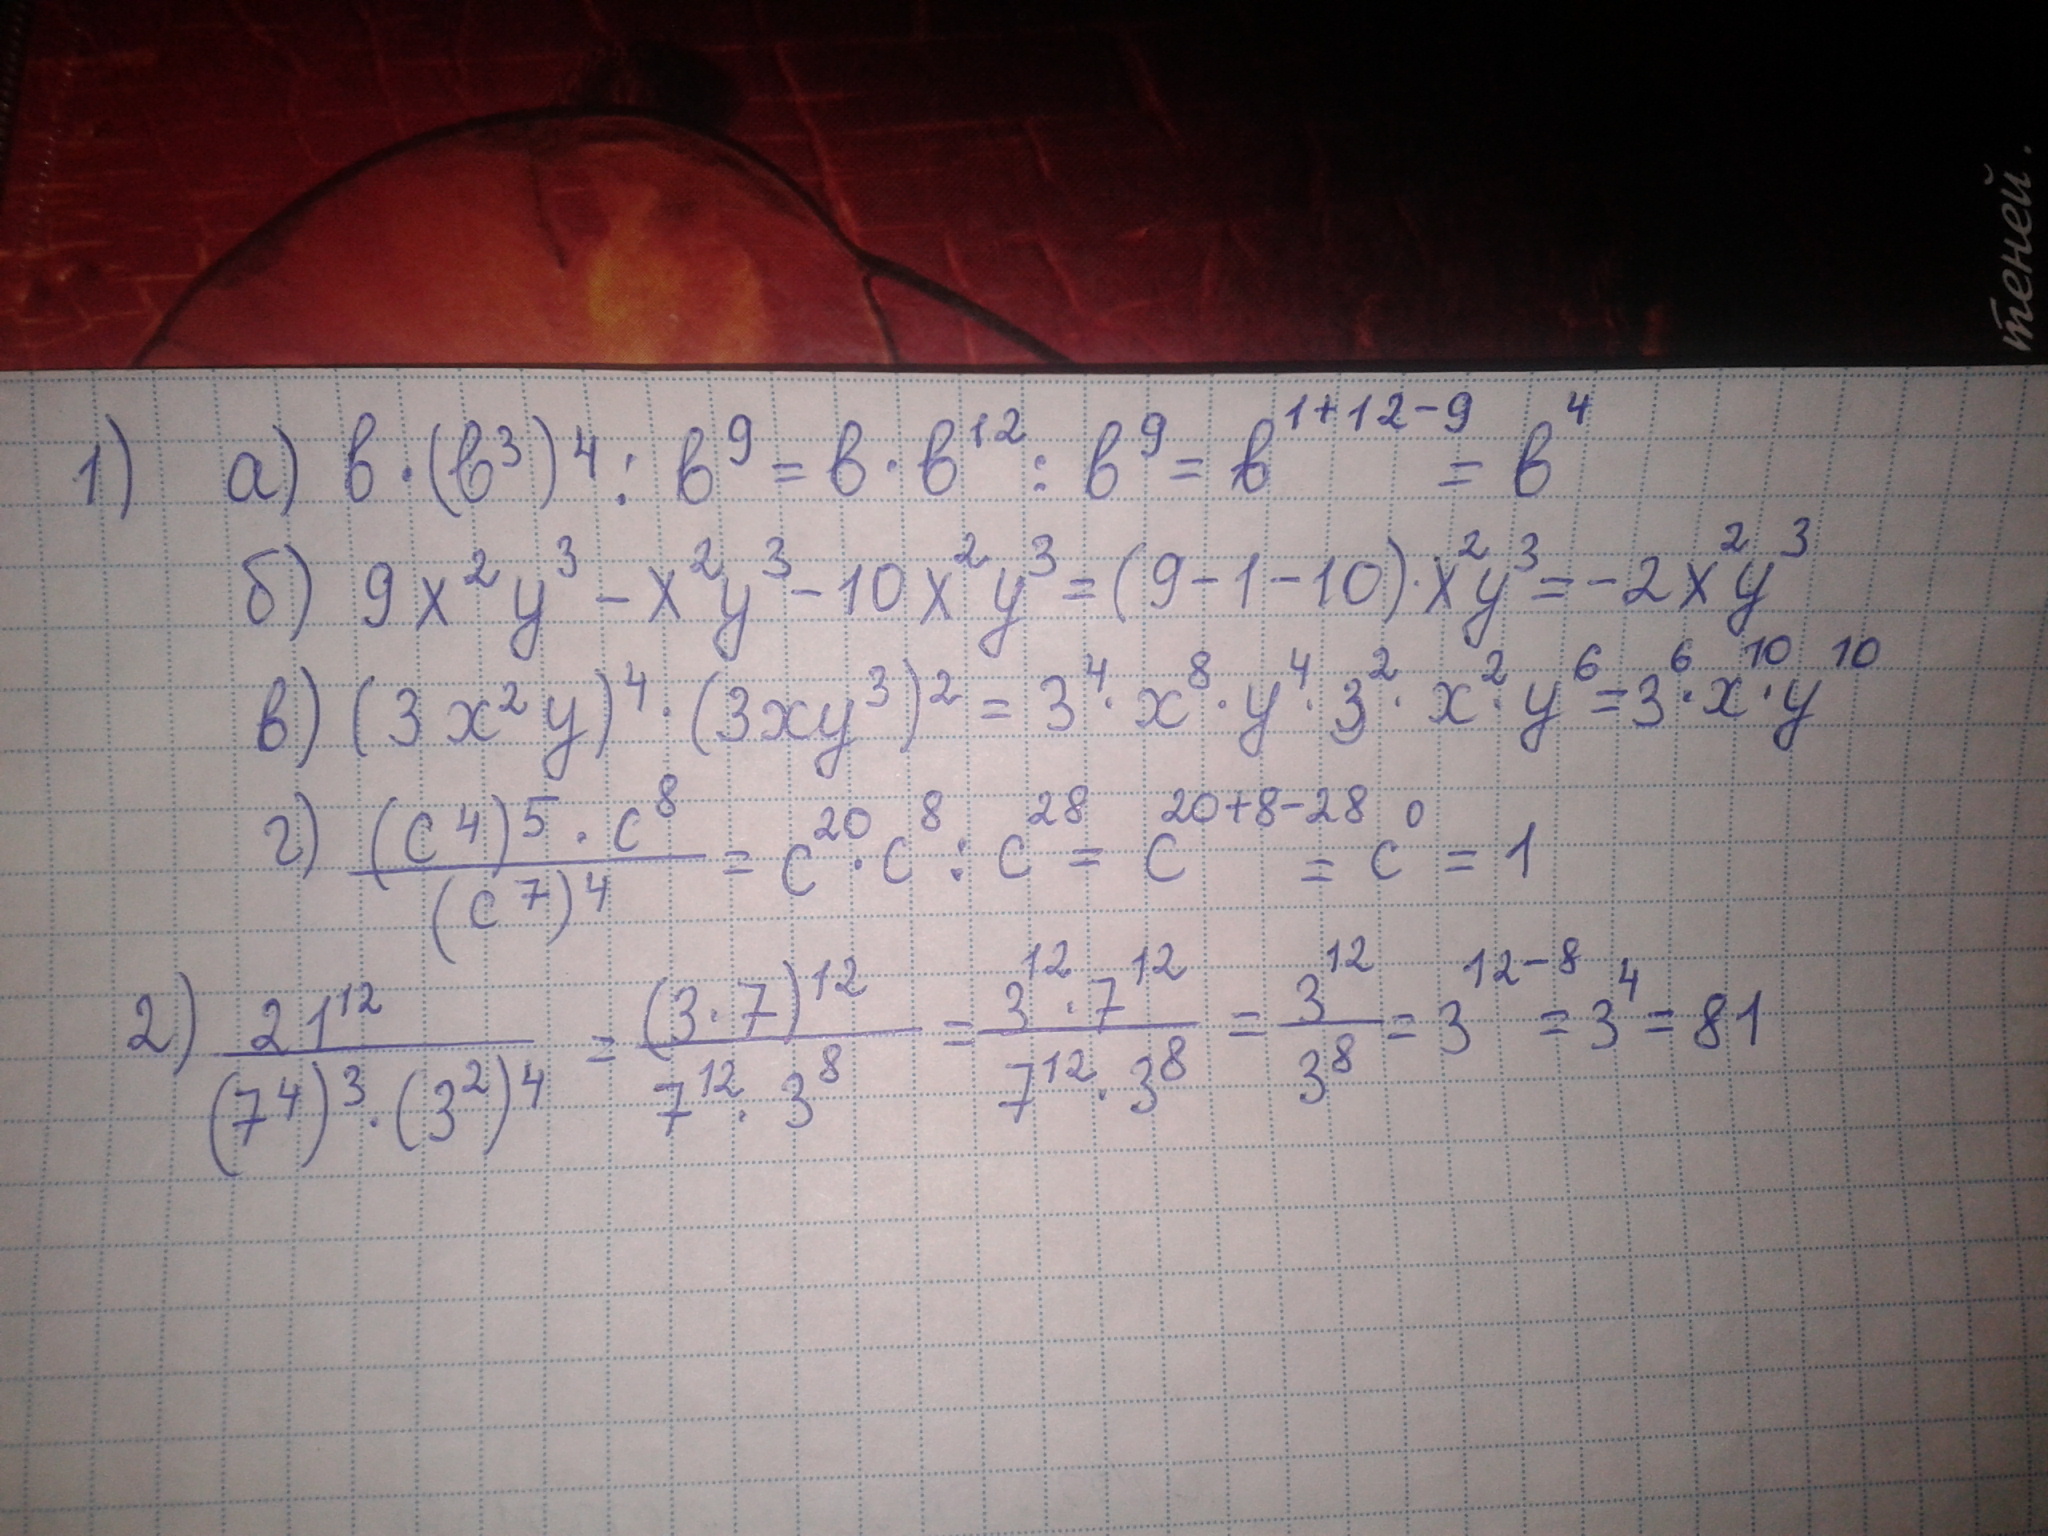 теней.
1) а) b·(b³)⁴ : b⁹ = b·b¹² : b⁹ = b¹⁺¹²⁻⁹ = b⁴
б) 9x²y³ - x²y³ - 10x²y³ = (9-1-10)·x²y³ = -2x²y³
в) (3x²y)⁴·(3xy³)² = 3⁴·x⁸·y⁴·3²·x²·y⁶ = 3⁶·x¹⁰·y¹⁰
г) (c⁴)⁵·c⁸ / (c⁷)⁴ = c²⁰·c⁸ : c²⁸ = c²⁰⁺⁸⁻²⁸ = c⁰ = 1
2) 21¹² / (7⁴)³·(3²)⁴ = (3·7)¹² / 7¹²·3⁸ = 3¹²·7¹² / 7¹²·3⁸ = 3¹² / 3⁸ = 3¹²⁻⁸ = 3⁴ = 81